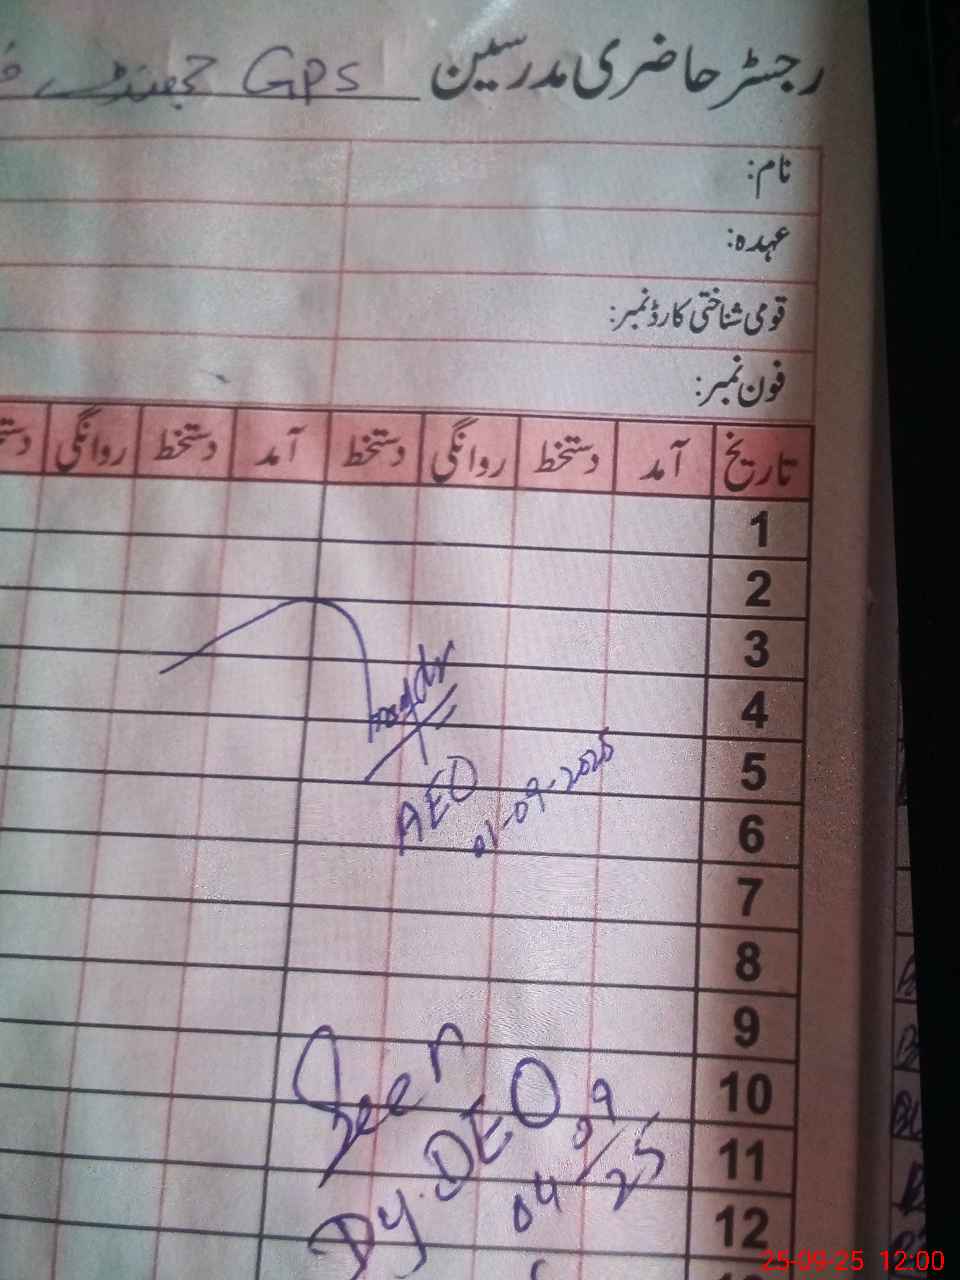 رجسٹر حاضری مدرسین GPS
نام:
عہدہ:
قومی شناختی کارڈ نمبر:
فون نمبر:
تاریخ آمد دستخط روانگی دستخط آمد دستخط روانگی
1
2
3
4
5
AEO
01-09-2025
6
7
8
9
10
11
Seen
Dy.DEO
04/09/25
12
25-09-25 12:00